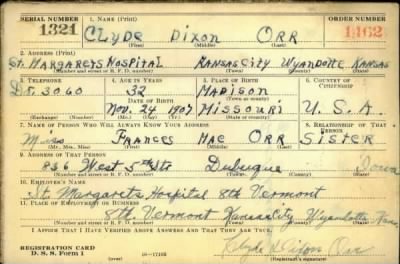 SERIAL NUMBER 1. NAME (Print) ORDER NUMBER
1321 CLyDE Dixon ORR 1462
(First) (Middle) (Last)
2. ADDRESS (Print)
ST. MARGARETS HOSPITAL KANSAS CITY WYANDOTTE KANSAS
(Number and street or R. F. D. number) (Town) (County) (State)
3. TELEPHONE 4. AGE IN YEARS 5. PLACE OF BIRTH 6. COUNTRY OF CITIZENSHIP
DR. 3060 32 MADISON
DATE OF BIRTH (Town or county)
Nov. 24 1907 MISSOURI U. S. A.
(Exchange) (Number) (Mo.) (Day) (Yr.) (State or country)
7. NAME OF PERSON WHO WILL ALWAYS KNOW YOUR ADDRESS 8. RELATIONSHIP OF THAT PERSON
Miss FRANCES MAC ORR SISTER
(Mr., Mrs., Miss) (First) (Middle) (Last)
9. ADDRESS OF THAT PERSON
836 West 5th St. Dubuque Iowa
(Number and street or R. F. D. number) (Town) (County) (State)
10. EMPLOYER'S NAME
St. Margarets Hospital 8th Vermont
11. PLACE OF EMPLOYMENT OR BUSINESS
8th. Vermont Kansas City Wyandotte Kan
(Number and street or R. F. D. number) (Town) (County) (State)
I AFFIRM THAT I HAVE VERIFIED ABOVE ANSWERS AND THAT THEY ARE TRUE.
REGISTRATION CARD
D. S. S. Form 1 Clyde Dixon Orr